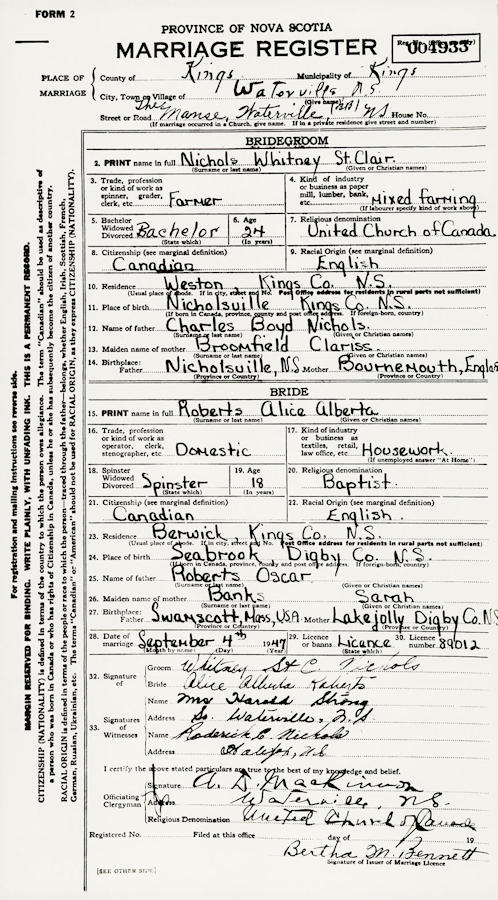 FORM 2
PROVINCE OF NOVA SCOTIA
MARRIAGE REGISTER
004933
PLACE OF MARRIAGE
County of Kings Municipality of Kings
City, Town or Village of Waterville N.S.
(Give name)
Street or Road The Manse, Waterville, NS House No.
(If marriage occurred in a Church, give name. If in a private residence give street and number)
BRIDEGROOM
2. PRINT name in full Nichols Whitney St.Clair.
(Surname or last name) (Given or Christian names)
3. Trade, profession or kind of work as spinner, grader, clerk, etc. Farmer
4. Kind of industry or business as paper mill, lumber, bank, etc. Mixed farming
(If labourer specify kind of work above)
5. Bachelor Widowed Divorced Bachelor
(State which)
6. Age 24
(In years)
7. Religious denomination
United Church of Canada
8. Citizenship (see marginal definition)
Canadian
9. Racial Origin (see marginal definition)
English
10. Residence Weston Kings Co. N.S.
(Usual place of abode. If in city, street and No. Post Office address for residents in rural parts not sufficient)
11. Place of birth Nicholsville Kings Co. N.S.
(If born in Canada, province, county and post office address. If foreign-born, country)
12. Name of father Charles Boyd Nichols.
(Surname or last name) (Given or Christian names)
13. Maiden name of mother Broomfield Clariss.
(Surname or last name) (Given or Christian names)
14. Birthplace: Father Nicholsville, N.S Mother Bournemouth, Englan
(Province or Country) (Province or Country)
BRIDE
15. PRINT name in full Roberts Alice Alberta
(Surname or last name) (Given or Christian names)
16. Trade, profession or kind of work as operator, clerk, stenographer, etc. Domestic
17. Kind of industry or business as textiles, retail, law office, etc. Housework.
(If unemployed answer "At Home")
18. Spinster Widowed Divorced Spinster
(State which)
19. Age 18
(In years)
20. Religious denomination
Baptist.
21. Citizenship (see marginal definition)
Canadian
22. Racial Origin (see marginal definition)
English.
23. Residence Berwick Kings Co. N.S.
(Usual place of abode. If in city, street and No. Post Office address for residents in rural parts not sufficient)
24. Place of birth Seabrook Digby Co. N.S.
(If born in Canada, province, county and post office address. If foreign-born, country)
25. Name of father Roberts Oscar
(Surname or last name) (Given or Christian names)
26. Maiden name of mother Banks Sarah
(Surname or last name) (Given or Christian names)
27. Birthplace: Father Swamscott, Mass, U.S.A. Mother Lakejolly Digby Co. N.S
(Province or Country) (Province or Country)
28. Date of marriage September 4th 1947
(Month by name) (Day)
29. Licence or banns Licence
(State which)
30. Licence number 89012
32. Signature of
Groom Whitney St C Nichols
Bride Alice Alberta Roberts
33. Signatures of Witnesses
Name Mrs Harold Strong
Address So. Waterville, N.S
Name Roderick C. Nichols
Address Halifax, N.S
I certify the above stated particulars are true to the best of my knowledge and belief.
Officiating Clergyman
Signature A. D. MacKinnon
Address Waterville, N.S.
Religious Denomination United Church of Canada
Registered No. Filed at this office day of 19
Bertha M. Bennett
Signature of Issuer of Marriage Licence
[SEE OTHER SIDE]
For registration and mailing instructions see reverse side.
MARGIN RESERVED FOR BINDING. WRITE PLAINLY, WITH UNFADING INK. THIS IS A PERMANENT RECORD.
CITIZENSHIP (NATIONALITY) is defined in terms of the country to which the person owes allegiance. The term "Canadian" should be used as descriptive of
a person who was born in Canada or who has rights of Citizenship in Canada, unless he or she has subsequently become the citizen of another country.
RACIAL ORIGIN is defined in terms of the people or race to which the person—traced through the father—belongs, whether English, Irish, Scottish, French,
German, Russian, Ukrainian, etc. The terms "Canadian" or "American" should not be used for RACIAL ORIGIN, as they express CITIZENSHIP (NATIONALITY).